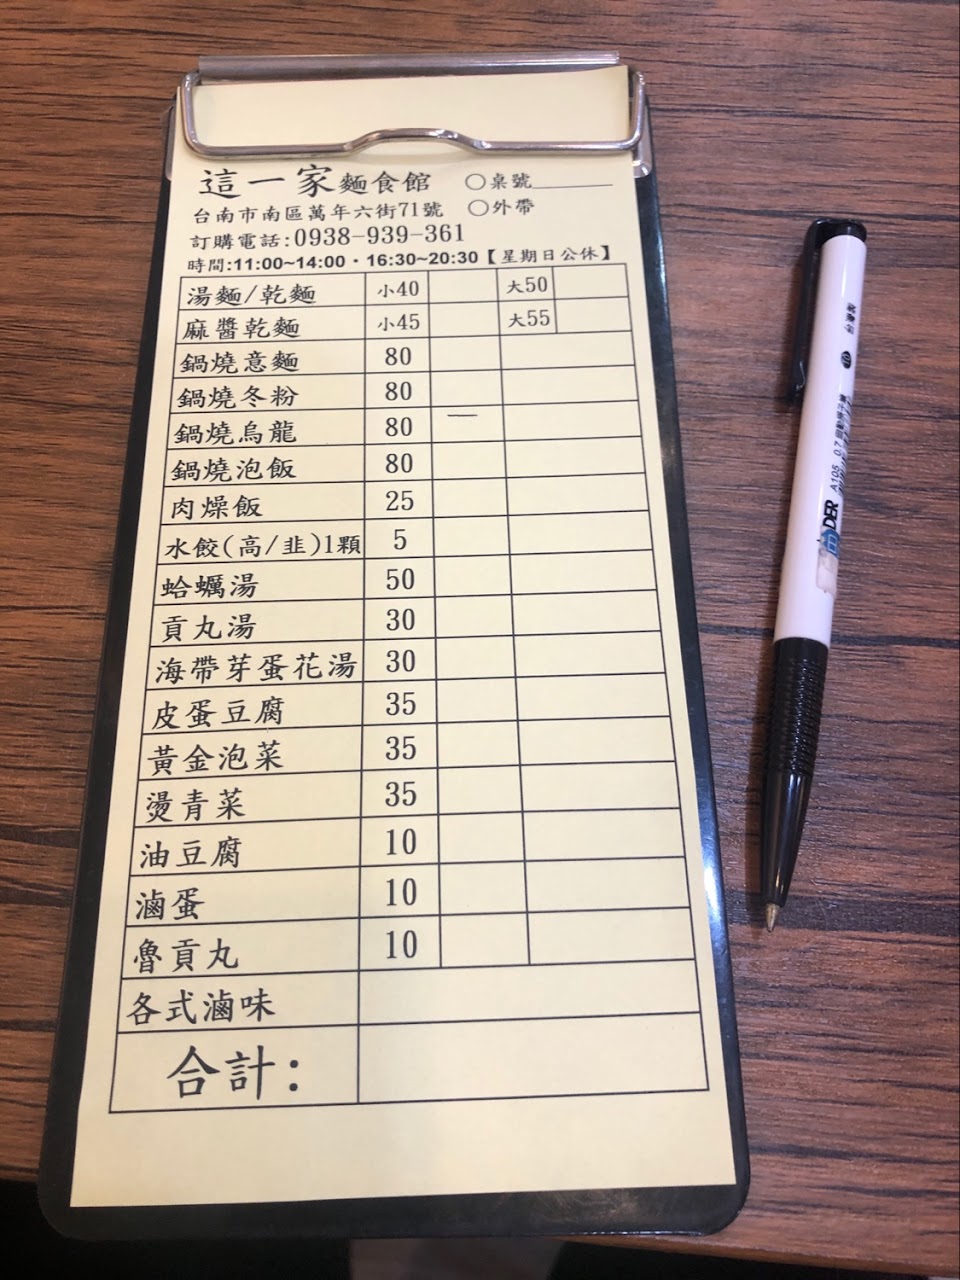 這一家麵食館 ○桌號
台南市南區萬年六街71號 ○外帶
訂購電話:0938-939-361
時間:11:00~14:00・16:30~20:30【星期日公休】
湯麵/乾麵 小40 大50
麻醬乾麵 小45 大55
鍋燒意麵 80
鍋燒冬粉 80
鍋燒烏龍 80
鍋燒泡飯 80
肉燥飯 25
水餃(高/韭)1顆 5
蛤蠣湯 50
貢丸湯 30
海帶芽蛋花湯 30
皮蛋豆腐 35
黃金泡菜 35
燙青菜 35
油豆腐 10
滷蛋 10
魯貢丸 10
各式滷味
合計:
A105 0.7
DER